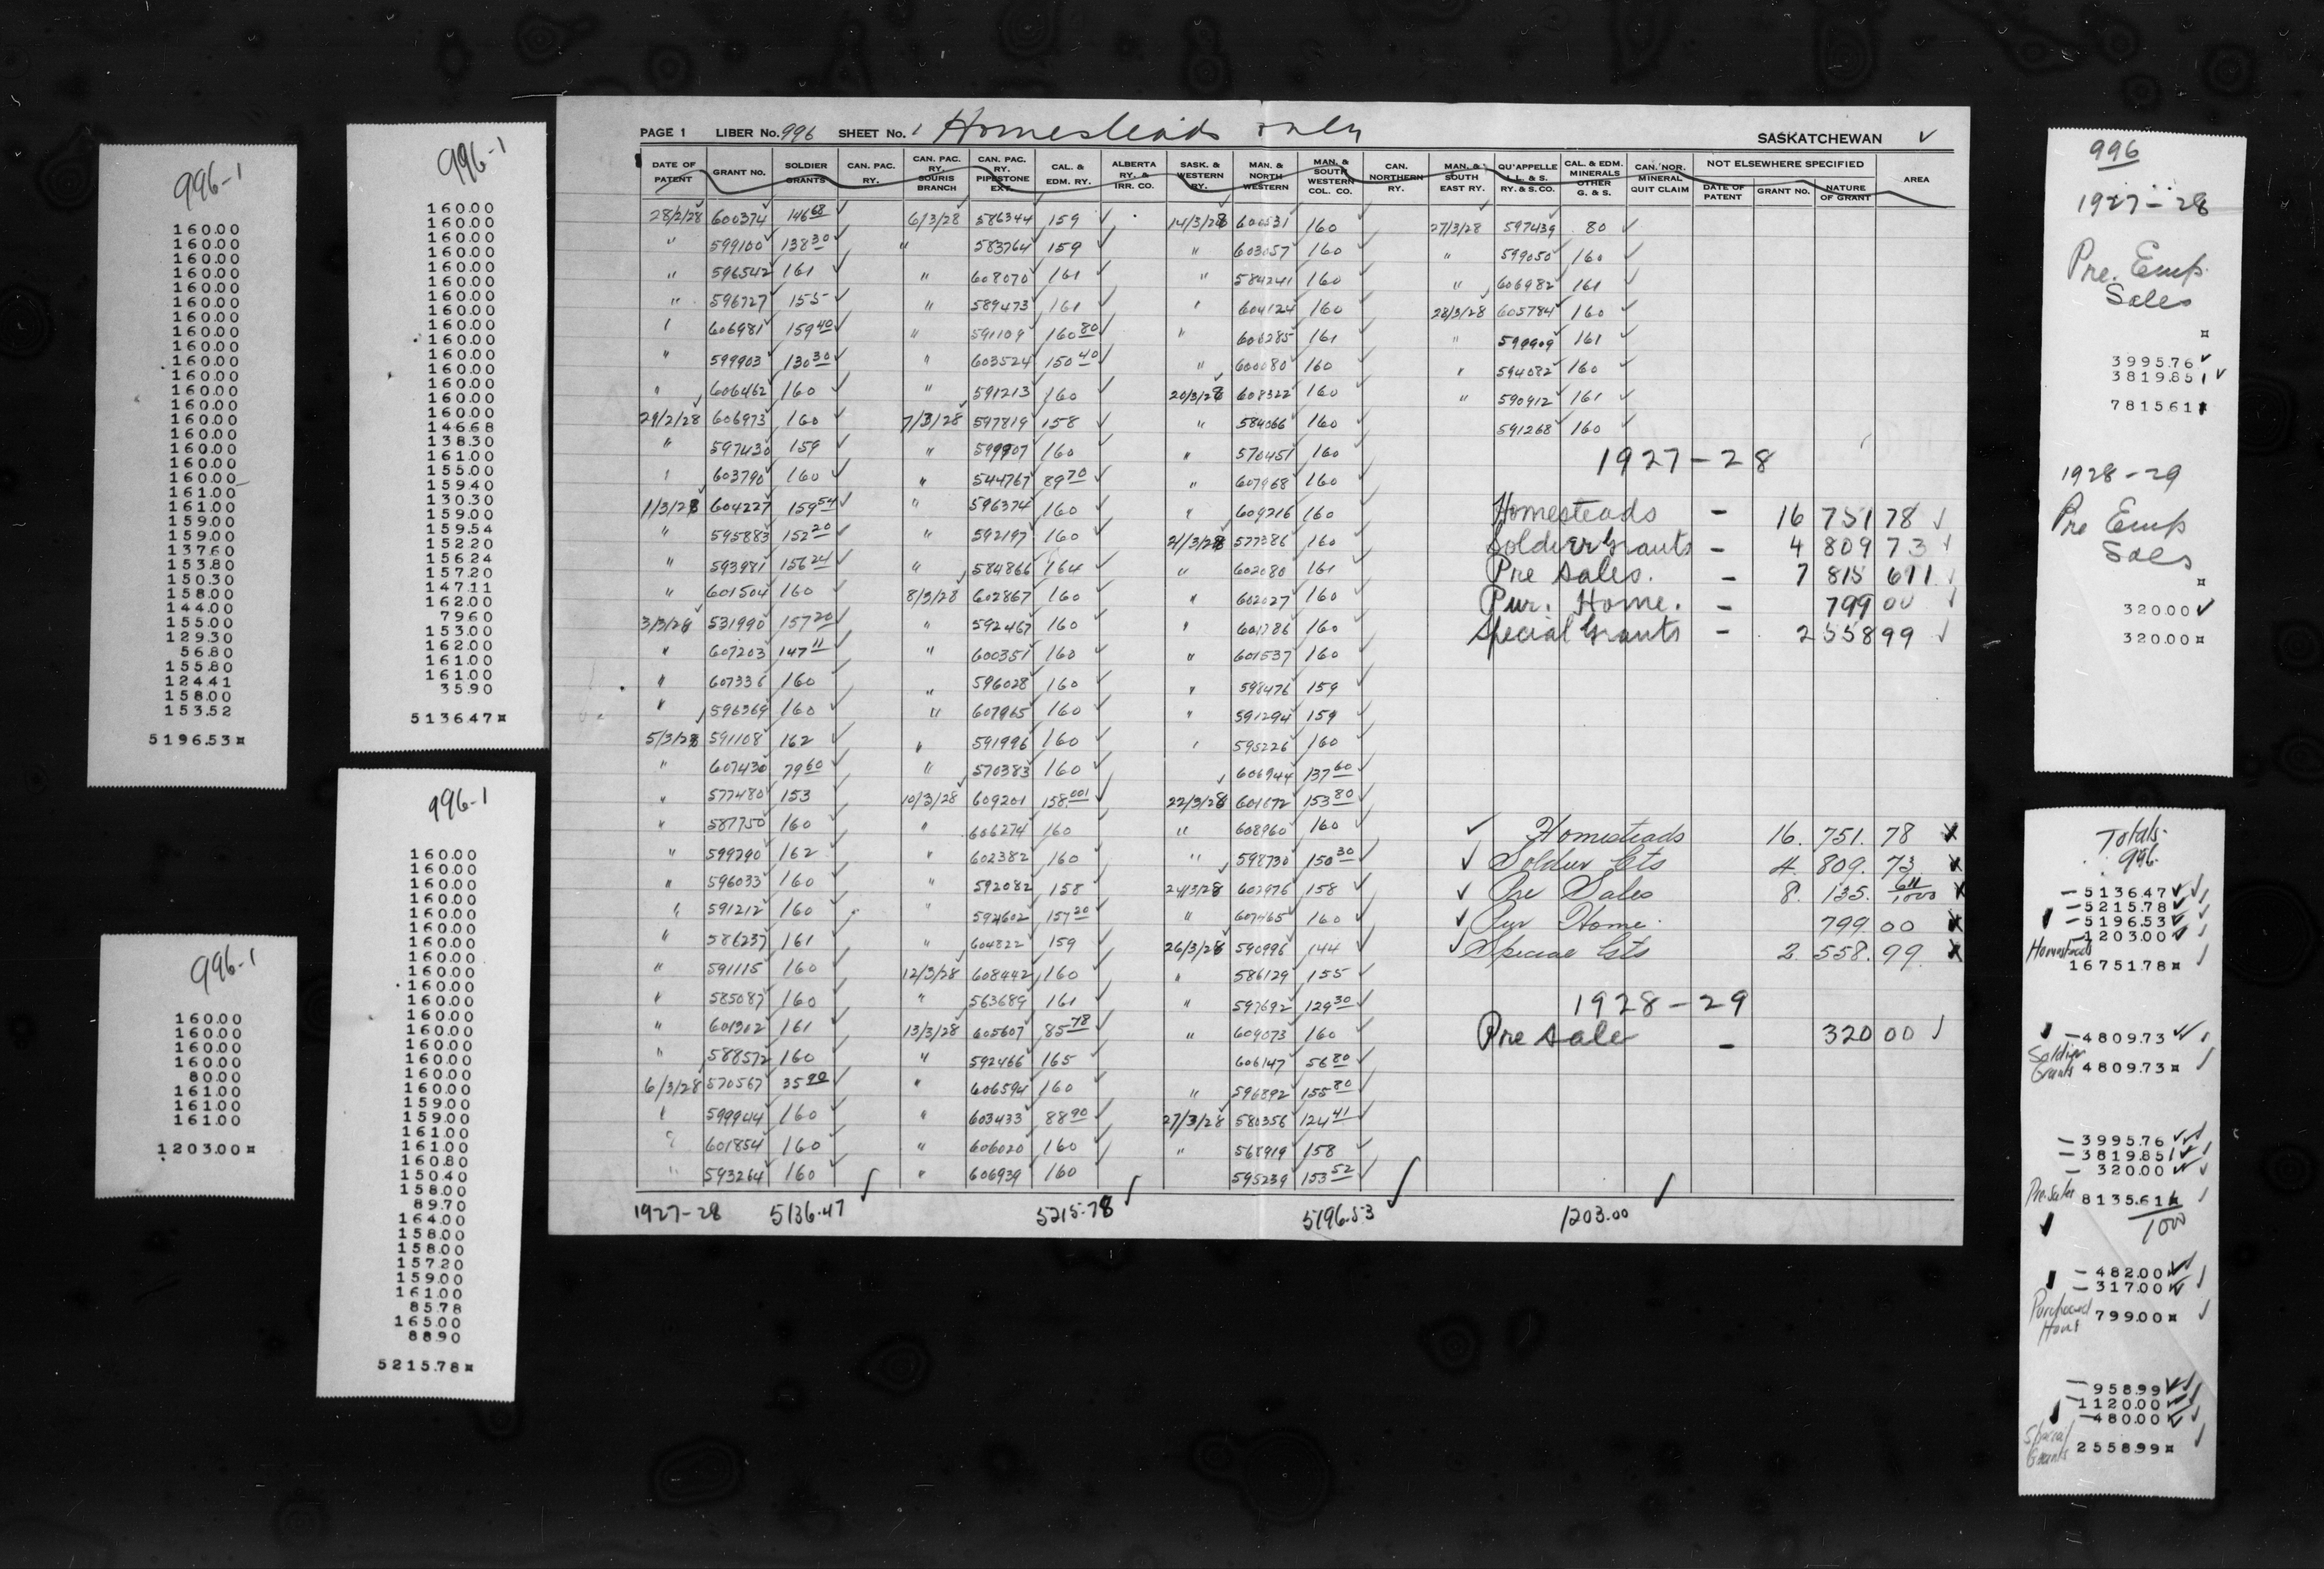 996-1
160.00
160.00
160.00
160.00
160.00
160.00
160.00
160.00
160.00
160.00
160.00
160.00
160.00
160.00
160.00
160.00
160.00
160.00
161.00
161.00
159.00
159.00
137.60
153.80
150.30
158.00
144.00
155.00
129.30
56.80
155.80
124.41
158.00
153.52
5196.53¤
996-1
160.00
160.00
160.00
160.00
160.00
160.00
160.00
160.00
160.00
160.00
160.00
160.00
160.00
160.00
160.00
146.68
138.30
161.00
155.00
159.40
130.30
159.00
159.54
152.20
156.24
157.20
147.11
162.00
79.60
153.00
162.00
161.00
161.00
35.90
5136.47¤
996-1
160.00
160.00
160.00
160.00
80.00
161.00
161.00
161.00
1203.00¤
996-1
160.00
160.00
160.00
160.00
160.00
160.00
160.00
160.00
160.00
160.00
160.00
160.00
160.00
160.00
160.00
160.00
160.00
159.00
159.00
161.00
161.00
160.80
150.40
158.00
89.70
164.00
158.00
158.00
157.20
159.00
161.00
85.78
165.00
88.90
5215.78¤
PAGE 1 LIBER No. 996 SHEET No. 1 Homesteads only SASKATCHEWAN ✓
DATE OF PATENT GRANT NO. SOLDIER GRANTS CAN. PAC. RY. CAN. PAC. RY. SOURIS BRANCH CAN. PAC. RY. PIPESTONE EXT. CAL. & EDM. RY. ALBERTA RY. & IRR. CO. SASK. & WESTERN RY. MAN. & NORTH WESTERN MAN. & SOUTH WESTERN COL. CO. CAN. NORTHERN RY. MAN. & SOUTH EAST RY. QU'APPELLE L.L. & S. RY. & S. CO. CAL. & EDM. MINERALS OTHER G. & S. CAN. NOR. MINERAL QUIT CLAIM NOT ELSEWHERE SPECIFIED DATE OF PATENT GRANT NO. NATURE OF GRANT AREA
28/2/28 600374 146 68 6/3/28 586344 159 14/3/28 600531 160 27/3/28 597439 80
" 599100 138 30 " 583764 159 " 603057 160 " 599050 160
" 596542 161 " 608070 161 " 584241 160 " 606982 161
" 596727 155 " 589473 161 " 604124 160 28/3/28 605784 160
" 606981 159 40 " 591109 160 80 " 606285 161 " 599909 161
" 599903 130 30 " 603524 150 40 " 600080 160 " 594082 160
" 606462 160 " 591213 160 20/3/28 608322 160 " 590912 161
29/2/28 606973 160 7/3/28 597819 158 " 584066 160 591268 160
" 597430 159 " 599907 160 " 570451 160 1927-28
" 603790 160 " 544767 89 70 " 607968 160
1/3/28 604227 159 54 " 596374 160 " 609216 160 Homesteads - 16 751 78 ✓
" 595883 152 20 " 592197 160 21/3/28 577386 160 Soldier Grants - 4 809 73 ✓
" 593981 156 24 " 584866 164 " 602080 161 Pre Sales. - 7 815 611 ✓
" 601504 160 8/3/28 602867 160 " 602027 160 Pur. Home. - 799 00 ✓
3/3/28 531990 157 20 " 592467 160 " 601786 160 Special Grants - 2 558 99 ✓
" 607203 147 11 " 600351 160 " 601537 160
" 607336 160 " 596028 160 " 598476 159
" 596369 160 " 607965 160 " 591294 159
5/3/28 591108 162 " 591996 160 " 595226 160
" 607430 79 60 " 570383 160 606944 137 60
" 577480 153 10/3/28 609201 158.001 22/3/28 601672 153 80
" 587750 160 " 606274 160 " 608960 160 ✓ Homesteads 16. 751. 78
" 599290 162 " 602382 160 " 598730 150 30 ✓ Soldier Gts 4. 809. 73
" 596033 160 " 592082 158 24/3/28 602976 158 ✓ Pre Sales 8. 135. 611/1000
" 591212 160 " 592602 157 20 " 607465 160 ✓ Pur Home. 799 00
" 586237 161 " 604822 159 26/3/28 590996 144 ✓ Special Gts 2. 558. 99
" 591115 160 12/3/28 608442 160 " 586129 155
" 585087 160 " 563689 161 " 597692 129 30 1928-29
" 601302 161 13/3/28 605607 85 78 " 609073 160 Pre Sale - 320 00 ✓
" 588572 160 " 592466 165 606147 56 80
6/3/28 570567 35 90 " 606594 160 " 596892 155 80
" 599944 160 " 603433 88 90 27/3/28 580356 124 41
" 601854 160 " 606020 160 " 568919 158
" 593264 160 " 606939 160 595239 153 52
1927-28 5136.47 5215.78 5196.53 1203.00
996
1927-28
Pre. Emp.
Sales
¤
3995.76 ✓
3819.851 ✓
7815.611
1928-29
Pre Emp
Sales
¤
320.00 ✓
320.00¤
Totals
996
- 5136.47 ✓✓
- 5215.78 ✓✓
- 5196.53 ✓✓
- 1203.00 ✓✓
Homesteads
16751.78¤ ✓
- 4809.73 ✓✓
Soldier
Grants 4809.73¤ ✓
- 3995.76 ✓✓
- 3819.851 ✓✓
- 320.00 ✓✓
Pre. Sales 8135.611 ✓
1000
- 482.00 ✓✓
- 317.00 ✓✓
Purchased
Home 799.00¤ ✓
- 958.99 ✓✓
- 1120.00 ✓✓
- 480.00 ✓✓
Special
Grants 2558.99¤ ✓